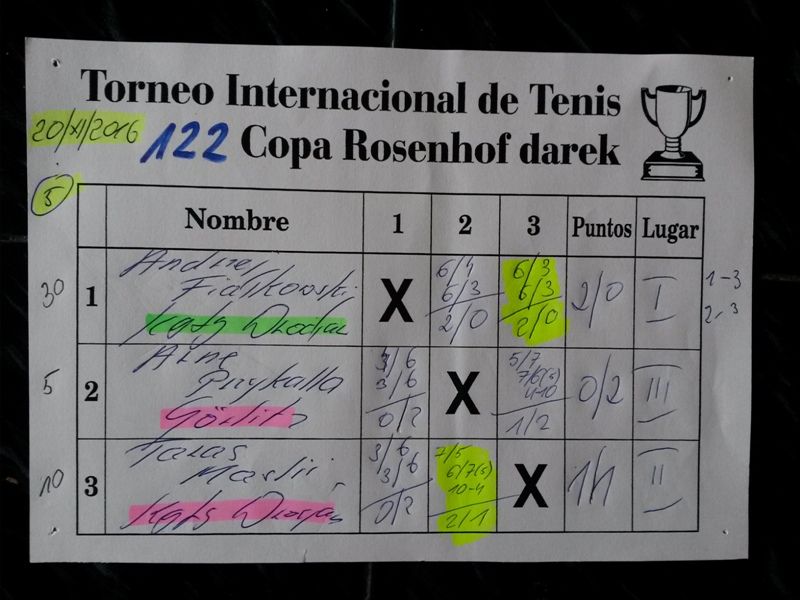 Torneo Internacional de Tenis
20/XI/2016 122 Copa Rosenhof darek
5
Nombre 1 2 3 Puntos Lugar
30 1 Andrzej X 6/4 6/3 2/0 I 1-3
6/3 6/3 2-3
2/0 2/0
5 2 Arne 3/6 X 5/7 0/2 III
Przykalla 3/6 7/6(5)
Görlitz 0/2 4-10
1/2
10 3 Taras 3/6 7/5 X 1/1 II
3/6 6/7(5)
0/2 10-4
2/1